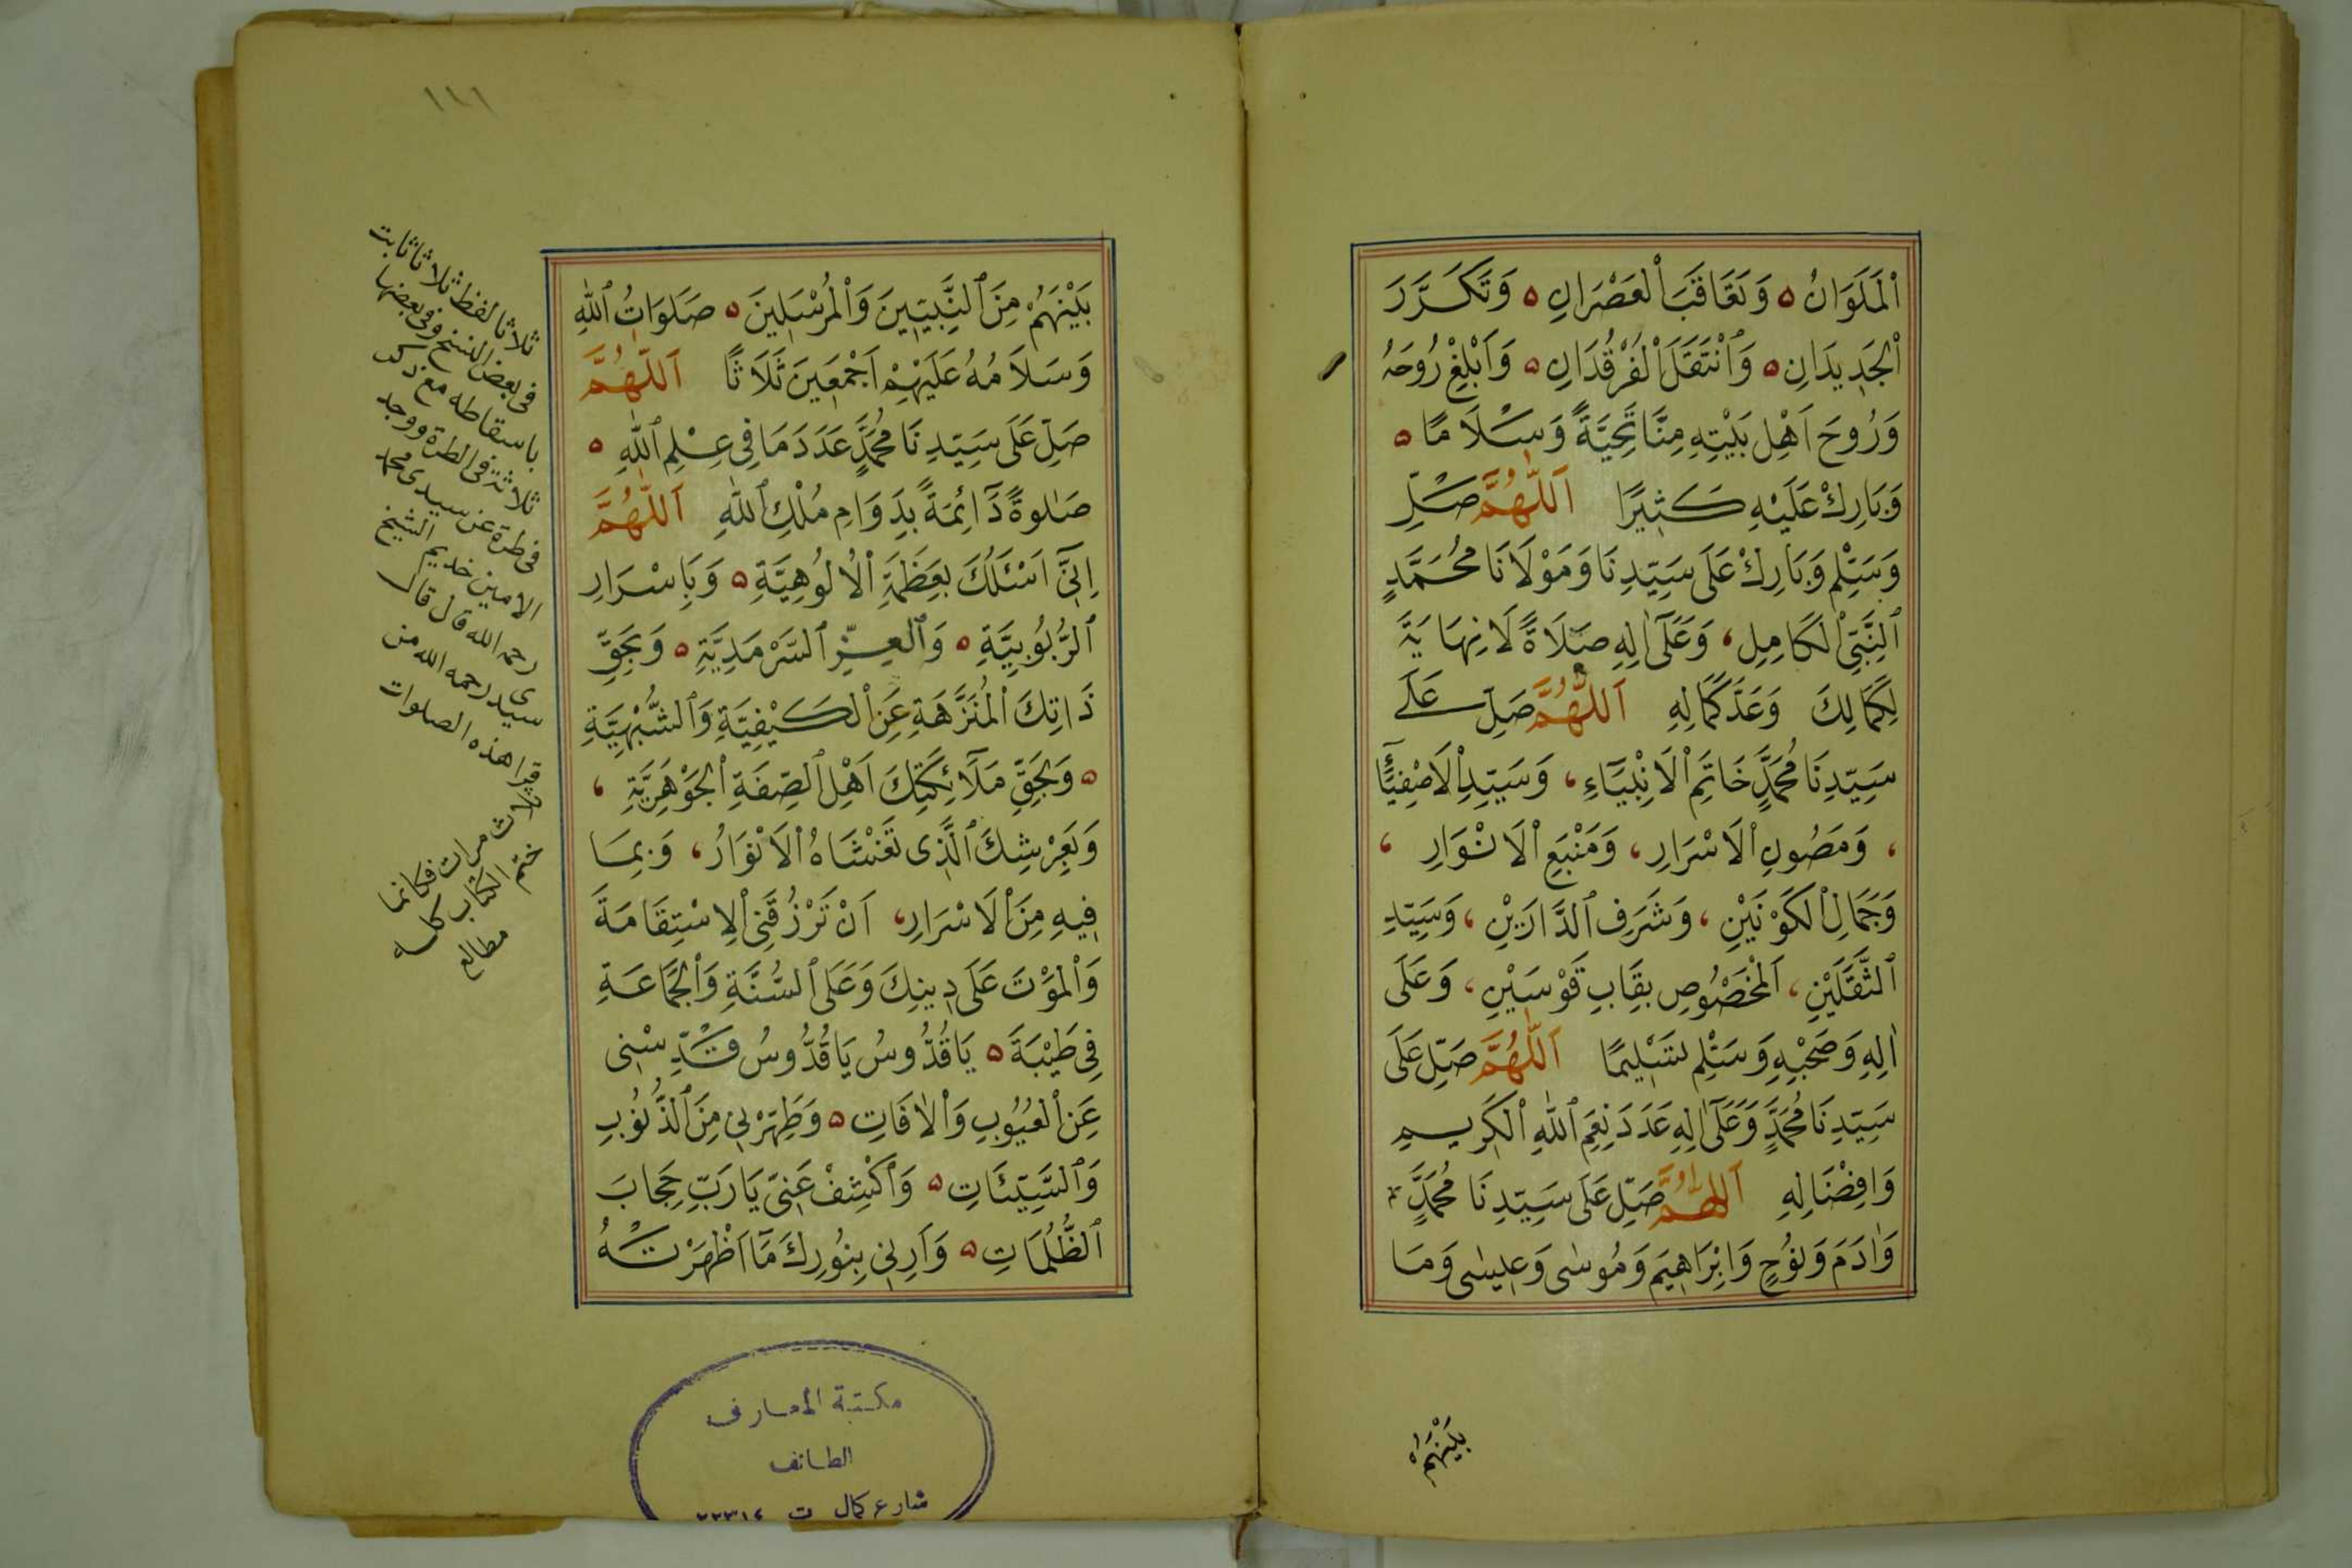 اْلمَلَوَانُ ۵ وَتَعَاقَبَ اْلعَصْرَانِ ۵ وَتَكَرَّرَ
اْلجَدِيدَانِ ۵ وَاْنْتَقَلَ اْلفُرْقُدَانِ ۵ وَاَبْلِغْ رُوحَهُ
وَرُوحَ اَهْلِ بَيْتِهِ مِنَّا تَحِيَّةً وَسَلَامًا ۵
وَبَارِكْ عَلَيْهِ كَثِيرًا اَللّٰهُمَّ صَلِّ
وَسَلِّمْ وَبَارِكْ عَلَى سَيِّدِنَا وَمَوْلَانَا مُحُمَّدٍ
ٱلنَّبِيِّ اْلكَامِلِ، وَعَلَى اٰلِهِ صَلَاةً لَا نِهَايَةَ
لِكَمَالِكَ وَعَدَّ كَمَالِهِ اَللّٰهُمَّ صَلِّ عَلَى
سَيِّدِنَا مُحَمَّدٍ خَاتَمِ اْلاَنْبِيَآءِ، وَسَيِّدِ اْلاَصْفِيَآءِ
، وَمَصُونِ اْلاَسْرَارِ، وَمَنْبَعِ اْلاَنْوَارِ ،
وَجَمَالِ اْلكَوْنَيْنِ، وَشَرَفِ ٱلدَّارَيْنِ، وَسَيِّدِ
ٱلثَّقَلَيْنِ، اَلْمَخْصُوصِ بِقَابِ قَوْسَيْنِ، وَعَلَى
اٰلِهِ وَصَحْبِهِ وَسَلِّمْ تَسْلِيمًا اَللّٰهُمَّ صَلِّ عَلَى
سَيِّدِنَا مُحَمَّدٍ وَعَلَى اٰلِهِ عَدَدَ نِعَمِ ٱللّٰهِ اْلكَرِيمِ
وَاِفْضَالِهِ اَللّٰهُمَّ صَلِّ عَلَى سَيِّدِنَا مُحَمَّدٍ
وَاٰدَمَ وَنُوحٍ وَاِبْرَاهِيمَ وَمُوسٰى وَعِيسٰى وَمَا
بَيْنَهُمْ
١٤١
بَيْنَهُمْ مِنَ ٱلنَّبِيِّينَ وَاْلمُرْسَلِينَ ۵ صَلَوَاتُ ٱللّٰهِ
وَسَلَامُهُ عَلَيْهِمْ اَجْمَعِينَ ثَلَاثًا اَللّٰهُمَّ
صَلِّ عَلَى سَيِّدِنَا مُحَمَّدٍ عَدَدَ مَا فِي عِلْمِ ٱللّٰهِ ۵
صَلٰوةً دَآئِمَةً بِدَوَامِ مُلْكِ ٱللّٰهِ اَللّٰهُمَّ
اِنِّيٓ اَسْئَلُكَ بِعَظَمَةِ اْلاُلُوهِيَّةِ ۵ وَبِاَسْرَارِ
ٱلرُّبُوبِيَّةِ ۵ وَٱلعِزِّ ٱلسَّرْمَدِيَّةِ ۵ وَبِحَقِّ
ذَاتِكَ اْلمُنَزَّهَةِ عَنِ اْلكَيْفِيَّةِ وَٱلشُّبْهِيَّةِ
۵ وَبِحَقِّ مَلَآئِكَتِكَ اَهْلِ ٱلصِّفَةِ اْلجَوْهَرِيَّةِ ،
وَبِعَرْشِكَ ٱلَّذِى تَغْشَاهُ اْلاَنْوَارُ، وَبِمَا
فِيهِ مِنَ اْلاَسْرَارِ، اَنْ تَرْزُقَنِى اْلاِسْتِقَامَةَ
وَاْلمَوْتَ عَلَى دِينِكَ وَعَلَى ٱلسُّنَّةِ وَاْلجَمَاعَةِ
فِى طَيْبَةَ ۵ يَاقُدُّوسُ يَاقُدُّوسُ قَدِّسْنِى
عَنِ اْلعُيُوبِ وَاْلاٰفَاتِ ۵ وَطَهِّرْنِى مِنَ ٱلذُّنُوبِ
وَٱلسَّيِّئَاتِ ۵ وَٱكْشِفْ عَنِّى يَارَبِّ حِجَابَ
ٱلظُّلُمَاتِ ۵ وَاَرِنِى بِنُورِكَ مَآ اَظْهَرْتَهُ
ثلاثا لفظ ثلاثا ثابت
فى بعض النسخ وفى بعضها
باسقاطه مع ذكر
ثلاثة فى الطرة ووجد
فى طرة عن سيدى محمد
الامين خديم الشيخ
رحمه الله قال قال
سيدى رحمه الله من
قرا هذه الصلوات
ثلاث مرات فكانما
ختم الكتاب كله
مطالع
مكتبة المعارف
الطائف
شارع كمال ت